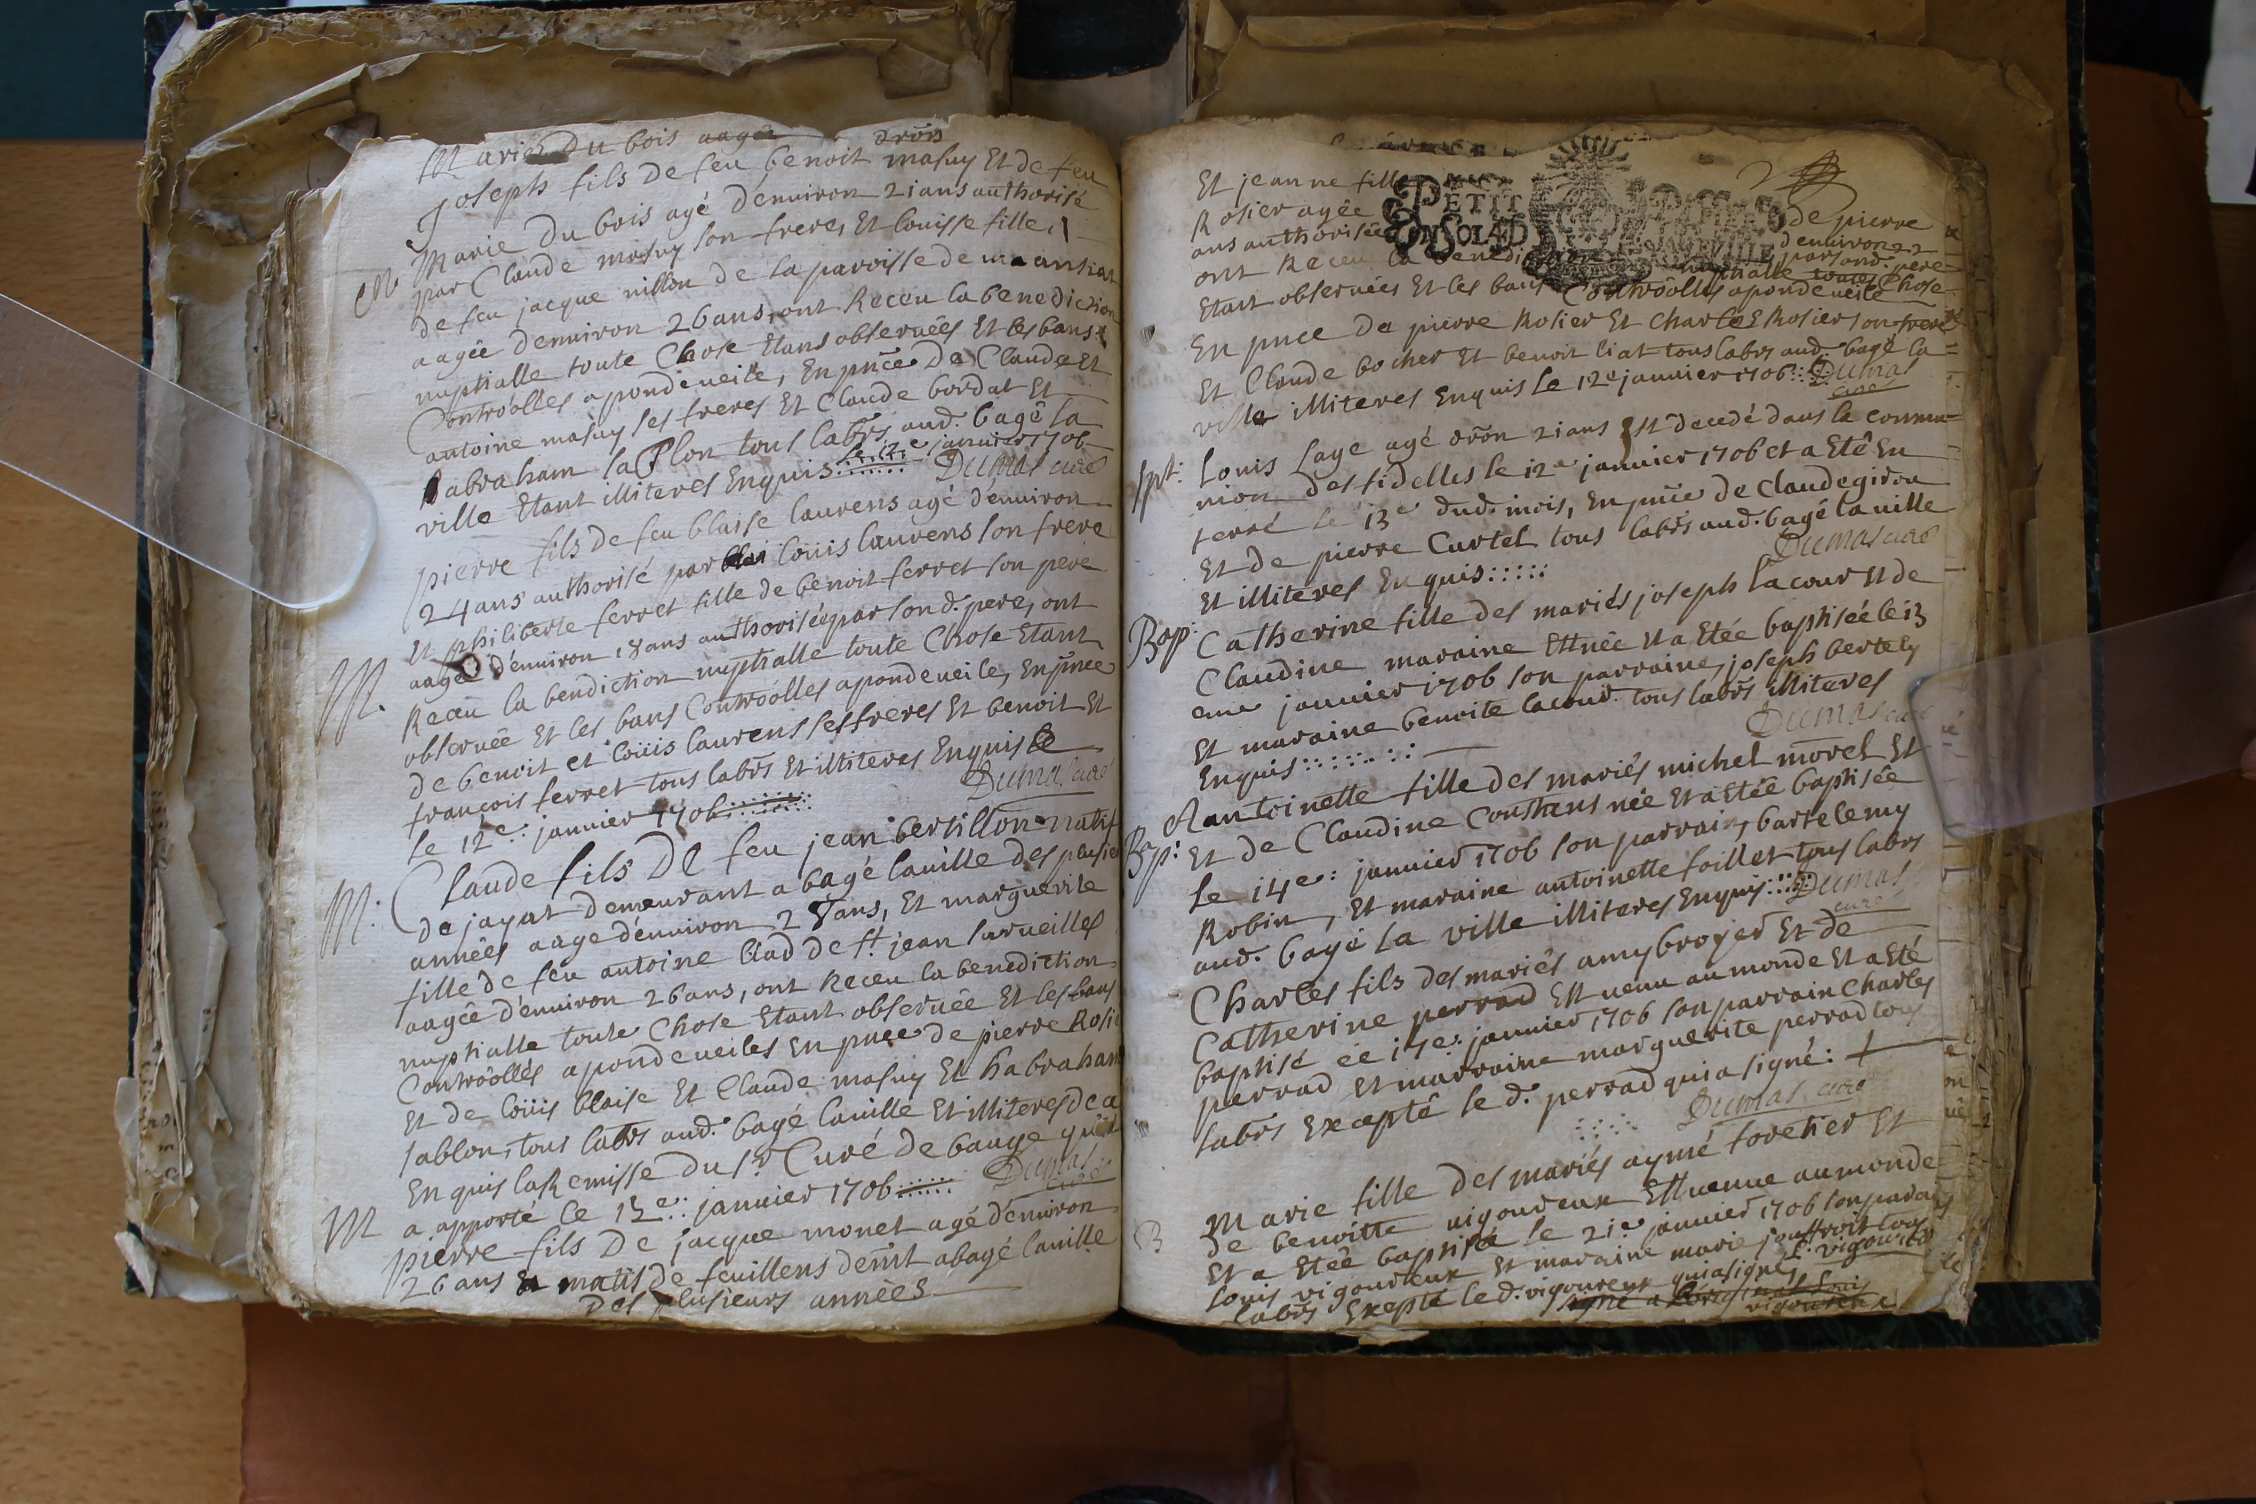 Marie Du bois aagée dron
Joseph fils De feu benoit masuy Et de feu
Marie Du bois agé d'enuiron 21 ans authorisé
par Claude masuy son frere, Et Louisse fille
M
de feu jacque nillon de la paroisse de
aagée denuiron 26 ans, ont Receu la benediction
nuptialle toute Chose Etans obseruées Et les bans
Controolles apondeueile, En pnce De Claude Et
antoine masuy ses freres Et Claude bordat Et
habraham tous labrs aud. bagé la
ville Etant illiteres Enquis le 12e januier 1706
Dumas curé
pierre fils de feu blaise laurens agé denuiron
24 ans authorisé par loüis laurens son frere
Et philiberte ferret fille de benoit ferret son pere
aagée d'enuiron 18 ans authorisée par son d. pere, ont
M.
Receu la bendiction nuptialle toute Chose Etant
obseruée Et les bans Controolles apondeueile, En pnce
de benoit et loüis laurens ses freres Et benoit Et
françois ferret tous labrs Et illiteres Enquis le
Le 12e: januier 1706
Dumas curé
M:
Claude fils De feu jean bertillon natif
de jayat demeurant a bagé lauille des plusie
années aage d'enuiron 28 ans, Et marguerite
fille de feu antoine blad de st jean surueilles
aagée d'enuiron 26 ans, ont Receu la benediction
nuptialle toute Chose Etant obseruée Et les bans
Controolles apondeueiles En pnce de pierre Rosie
Et de loüis blaise Et Claude masuy Et habraham
sablon, tous labrs aud. bagé lauille Et illiteres de ce
Enquis la Remisse du sr Curé de bauge
a apporté le 12e: januier 1706
Dumas curé
M
pierre fils De jacque monet agé d'enuiron
26 ans natif de feuillens demt abagé lauille
Des plusieurs années
2
Et jeanne fille de pierre
PETIT
EN SOL &D
Rosier agée d'enuiron 22
ans authorisée par son d. pere
ont Receu la benediction nuptialle toutes Chose
Etant obseruées Et les bans Controolles apondeueile
En pnce de pierre Rosier Et Charle Rosier son frere
Et Claude bocher Et benoit liat tous labrs aud. bagé la
ville illiteres Enquis le 12e januier 1706
Dumas curé
spt:
Louis Lage agé dron 21 ans Est decedé dans la commu=
nion des fidelles le 12e januier 1706 et a Eté En
terré le 13e dud. mois, En pnce de Claude giron
Et de pierre Curtel tous labrs aud. bagé lauille
Et illiteres Enquis
Dumas curé
Bap:
Catherine fille des mariés joseph Lacour Et de
Claudine maraine Est née Et a Etée baptisée le 13
eme januier 1706 son parraine, joseph bertely
Et maraine benoite lacour tous labrs illiteres
Enquis
Dumas curé
Aantoinette fille des mariés michel morel Et
Bap:
Et de Claudine Constans née Et a Etée baptisée
Le 14e: januier 1706 son parrain, bartelemy
Robin, Et maraine antoinette foillet tous labrs
aud. bagé La ville illiteres Enquis
Dumas curé
Charles fils des mariés amy broyer Et de
Catherine perrad Est uenu au monde Et a Eté
baptisé le 17e: januier 1706 son parrain Charles
perrad Et marraine marguerite perrad tous
labrs Excepté le d. perrad qui a signé:
Dumas curé
B
Marie fille des mariés aymé foretier Et
de benoitte uigoureux Est uenue au monde
Et a Etée baptisée le 21e januier 1706 son parain
Louis vigoureux Et maraine marie tous
labrs Excepté le d. vigoureux qui a signé
L. vigoureux
signé a Louis
vigoureux